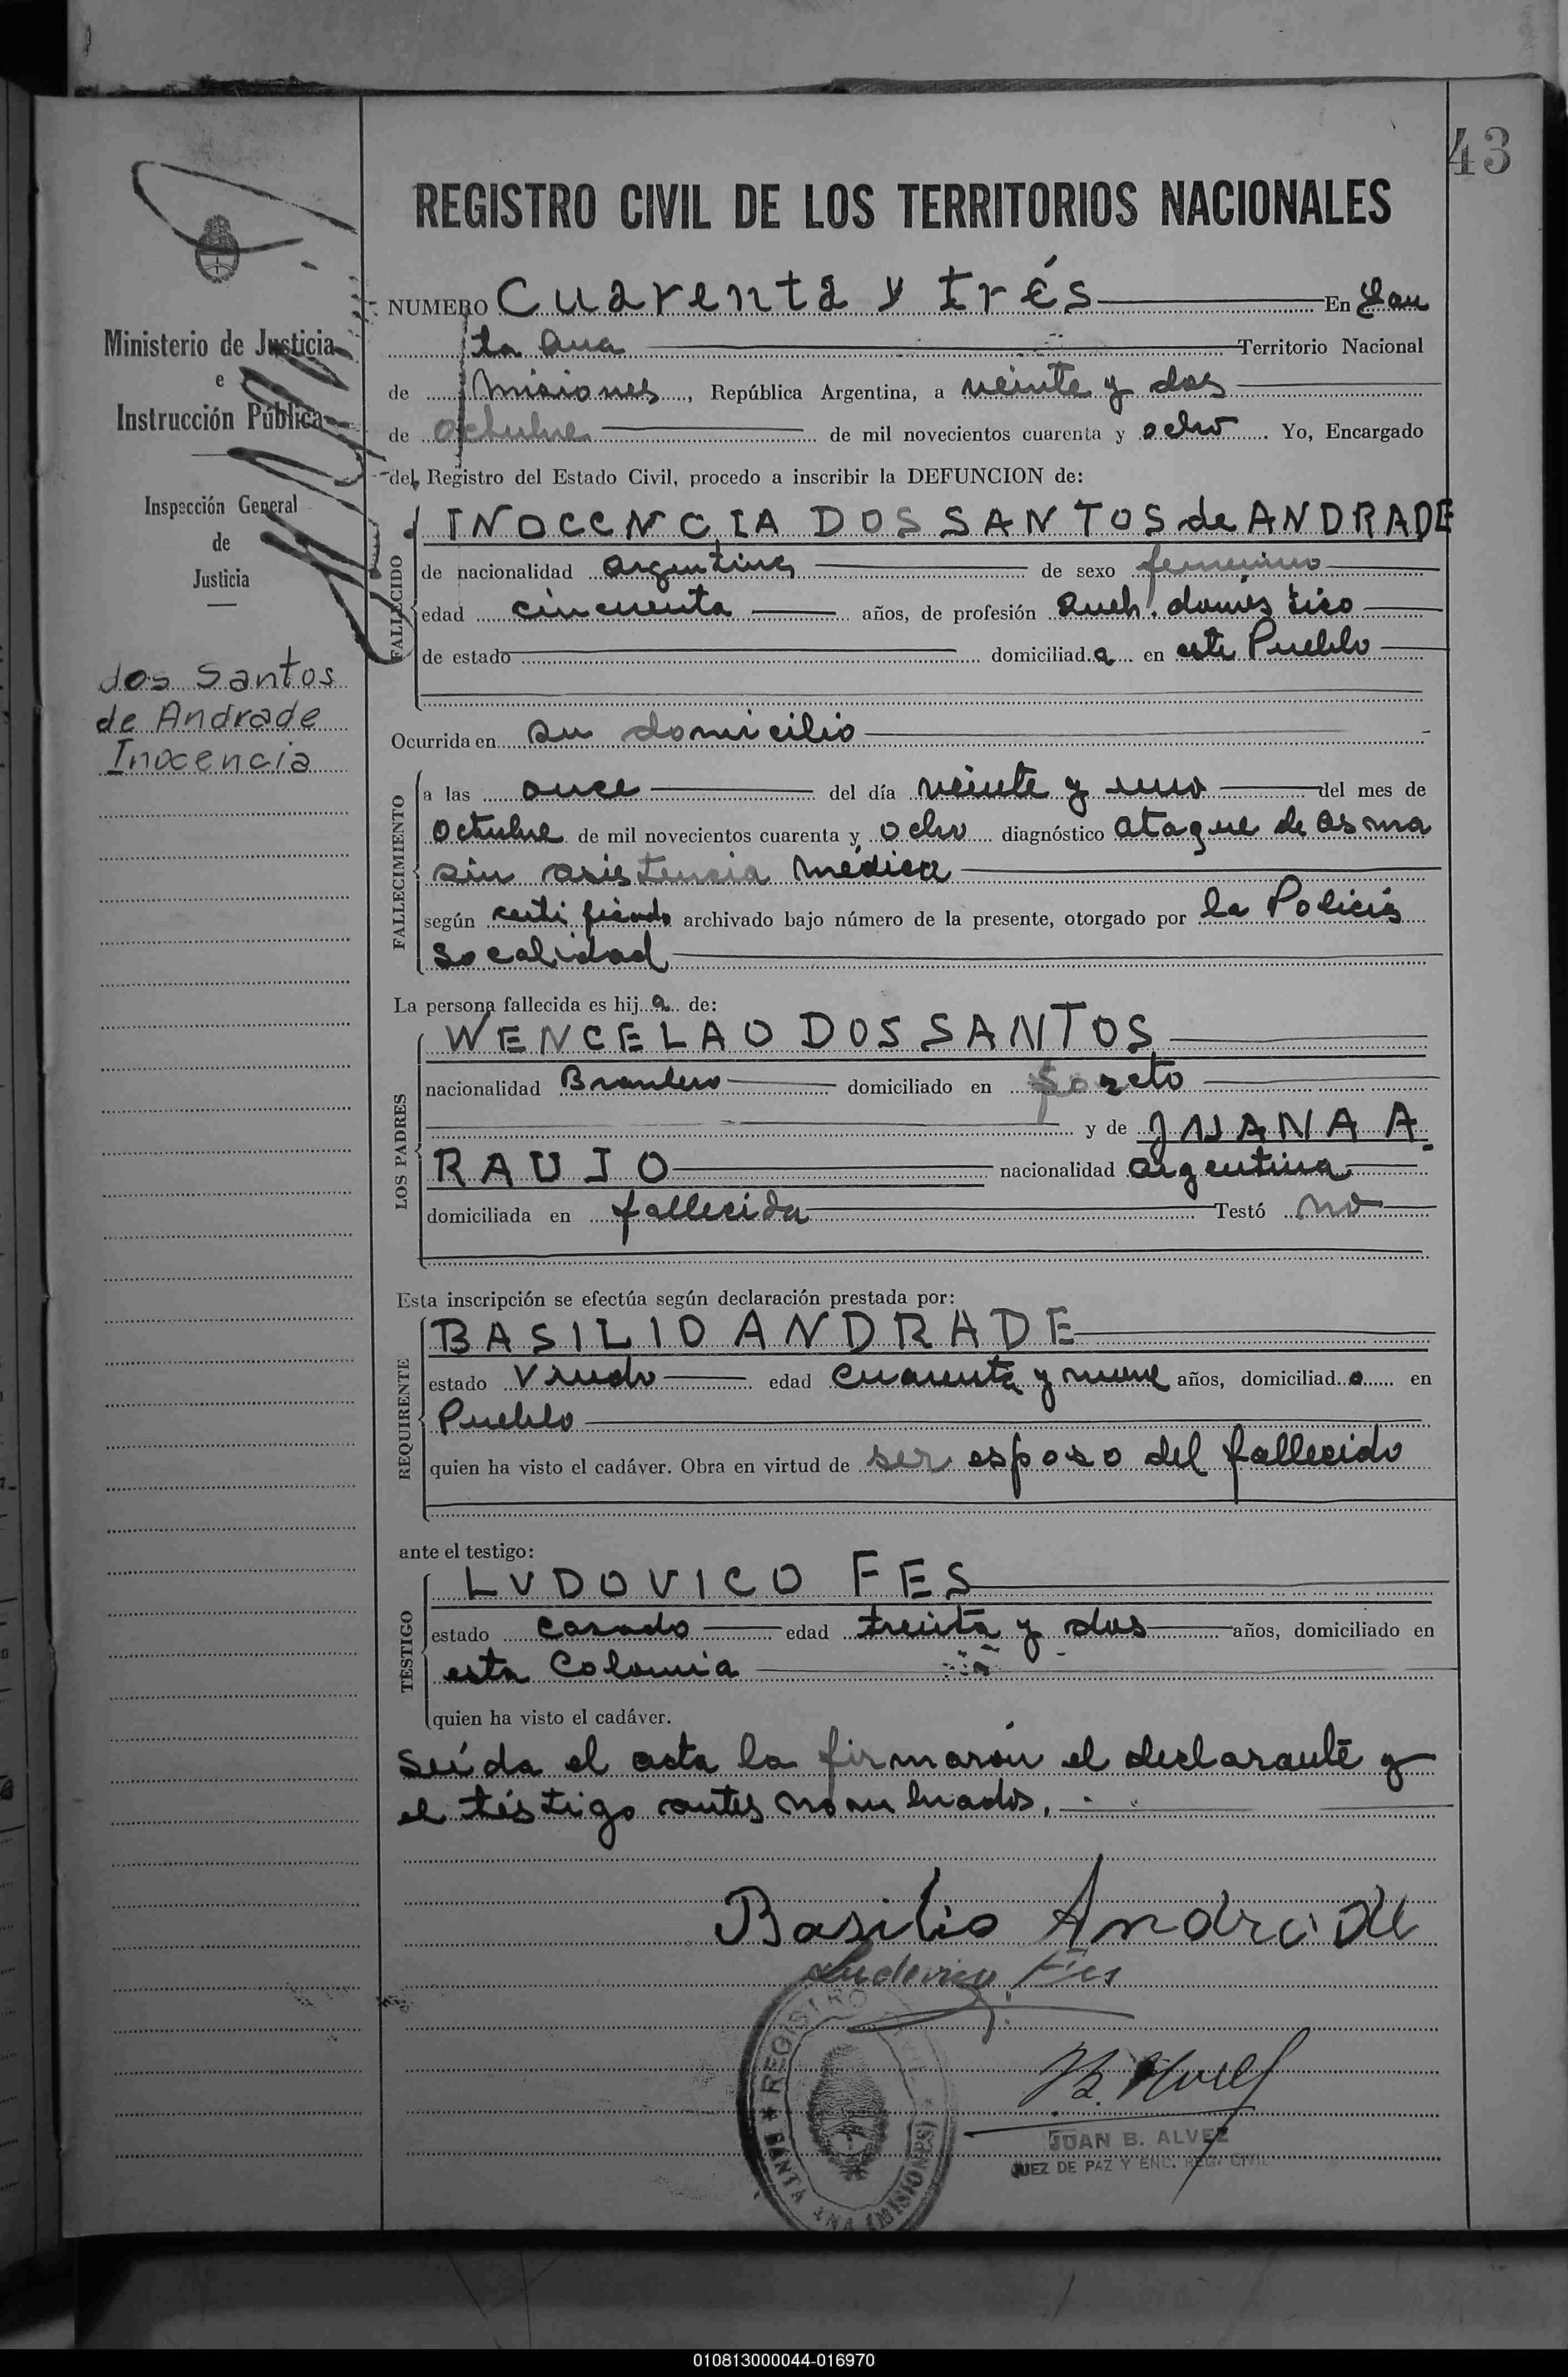 43
REGISTRO CIVIL DE LOS TERRITORIOS NACIONALES
Ministerio de Justicia
e
Instrucción Pública
Inspección General
de
Justicia
dos Santos
de Andrade
Inocencia
NUMERO Cuarenta y trés En San
ta Ana Territorio Nacional
de Misiones, República Argentina, a veinte y dos
de octubre de mil novecientos cuarenta y ocho. Yo, Encargado
del Registro del Estado Civil, procedo a inscribir la DEFUNCION de:
FALLECIDO
INOCENCIA DOS SANTOS de ANDRADE
de nacionalidad argentina de sexo femenino
edad cincuenta años, de profesión Queh. domés tico
de estado domiciliad.a en este Pueblo
Ocurrida en su domicilio
FALLECIMIENTO
a las once del día veinte y uno del mes de
octubre de mil novecientos cuarenta y ocho diagnóstico ataque de asma
sin asistencia médica
según certificado archivado bajo número de la presente, otorgado por la Policia
Localidad
La persona fallecida es hij a de:
LOS PADRES
WENCELAO DOS SANTOS
nacionalidad Brasilero domiciliado en Loreto
y de JUANA A
RAUJO nacionalidad argentina
domiciliada en fallecida Testó no
Esta inscripción se efectúa según declaración prestada por:
REQUIRENTE
BASILIO ANDRADE
estado Viudo edad cuarenta y nueve años, domiciliad o en
Pueblo
quien ha visto el cadáver. Obra en virtud de ser esposo del fallecido
ante el testigo:
TESTIGO
LVDOVICO FES
estado casado edad treinta y dos años, domiciliado en
esta Colonia
quien ha visto el cadáver.
Leída el acta la firmarón el declarante y
el téstigo antes nombrados.
Basilio Andrade
Ludovico Fes
REGISTRO
SANTA ANA (MISIONES)
JUAN B. ALVEZ
JUEZ DE PAZ Y ENC. REG. CIVIL
010813000044-016970